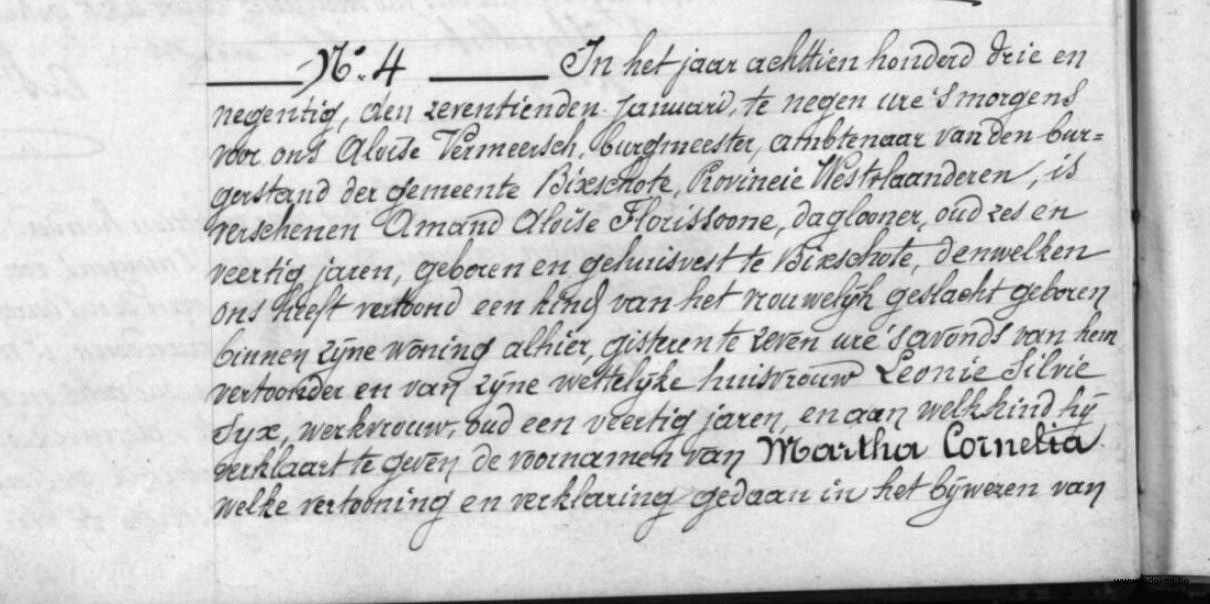 N.º 4 In het jaar achttien honderd drie en
negentig, den zeventienden Januari, te negen ure 's morgens
voor ons Aloïse Vermeersch, burgmeester, ambtenaar van den bur=
gerstand der gemeente Bixschote, Provincie Westvlaanderen, is
verschenen Amand Aloïse Florissoone, daglooner, oud zes en
veertig jaren, geboren en gehuisvest te Bixschote, denwelken
ons heeft vertoond een kind van het vrouwelijk geslacht geboren
binnen zijne woning alhier, gisteren te zeven ure 's avonds van hem
vertoonder en van zijne wettelijke huisvrouw Leonie Silvie
Syx, werkvrouw, oud een veertig jaren, en aan welk kind hij
verklaart te geven de voornamen van Martha Cornelia
welke vertooning en verklaring gedaan in het bijwezen van